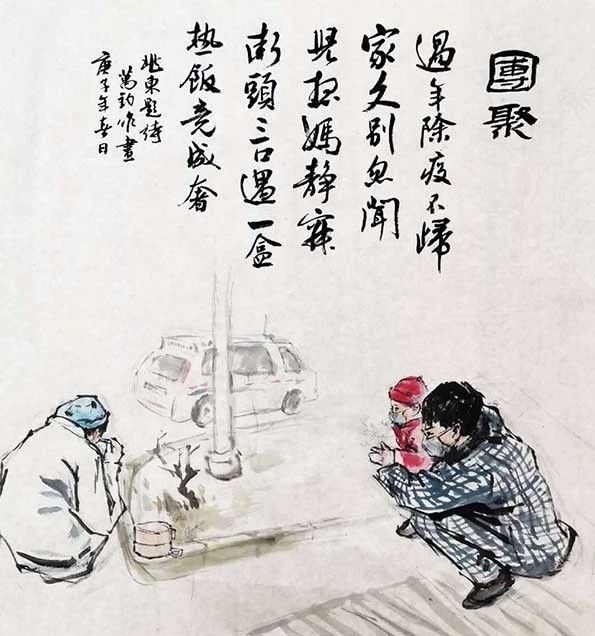 團聚
過年除疫不歸
家久别忽聞
兒想媽静寂
街頭三口遇一盒
热飯竟成奢
兆東題詩
萬鈞作畫
庚子年春日